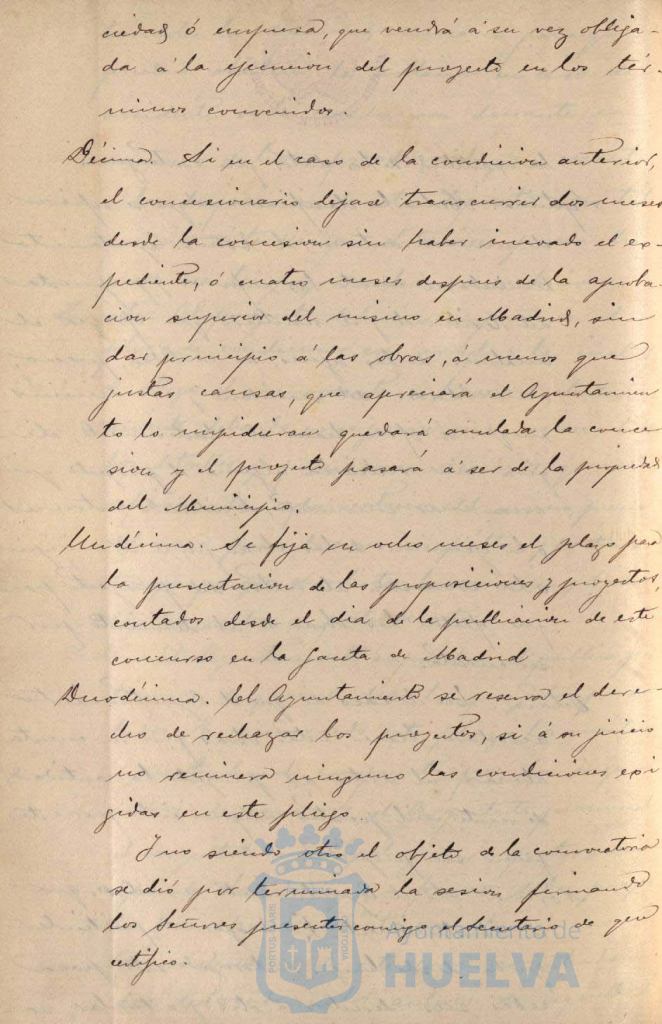 ciedad ó empresa, que vendrá á su vez obliga-
da á la ejecucion del proyecto en los tér-
minos convenidos.
Décima. Si en el caso de la condicion anterior,
el concesionario dejase transcurrir dos meses
desde la concesion sin haber incoado el ex-
pediente, ó cuatro meses despues de la aproba-
cion superior del mismo en Madrid, sin
dar principio á las obras, á menos que
justas causas, que apreciará el Ayuntamien
to lo impidieran quedará anulada la conce
sion y el proyecto pasará á ser de la propiedad
del Municipio.
Undécima. Se fija en ocho meses el plazo para
la presentacion de las proposiciones y proyectos,
contados desde el dia de la publicacion de este
concurso en la Gaceta de Madrid
Duodécima. El Ayuntamiento se reserva el dere-
cho de rechazar los proyectos, si á su juicio
no reuniera ninguno las condiciones exi
gidas en este pliego.
Y no siendo otro el objeto de la convocatoria
se dió por terminada la sesion firmando
los Señores presentes conmigo el Secretario de que
certifico.
PORTUS MARIS
CUSTODIA
Ayuntamiento de
HUELVA